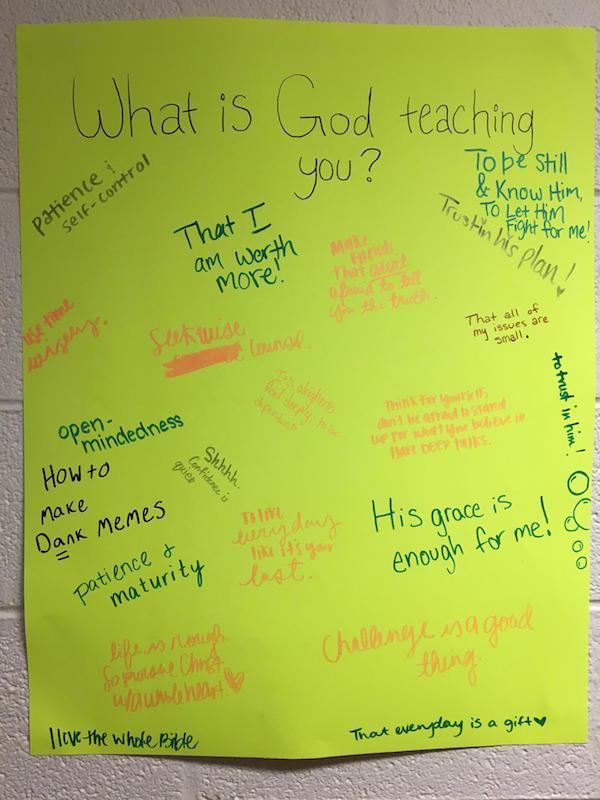 What is God teaching
you?
Patience &
self-control
To be Still
& Know Him,
To Let Him
Fight for me!
Trust in his plan!
That I
am worth
more!
Make
friends
that aren't
afraid to tell
you the truth.
use time
wisely.
Seek wise
counsel.
That all of
my issues are
small.
to trust in him!
It is alright to
feel deeply, to be
dependent
Think for yourself,
don't be afraid to stand
up for what you believe in.
Have DEEP talks.
open-
mindedness
Shhhh.
Confidence is
quiet
How to
make
Dank memes
To live
everyday
like it's your
last.
His grace is
enough for me!
patience &
maturity
life is rough
So pursue Christ
w/a whole heart
Challenge is a good
thing.
I love the whole Bible
That everyday is a gift